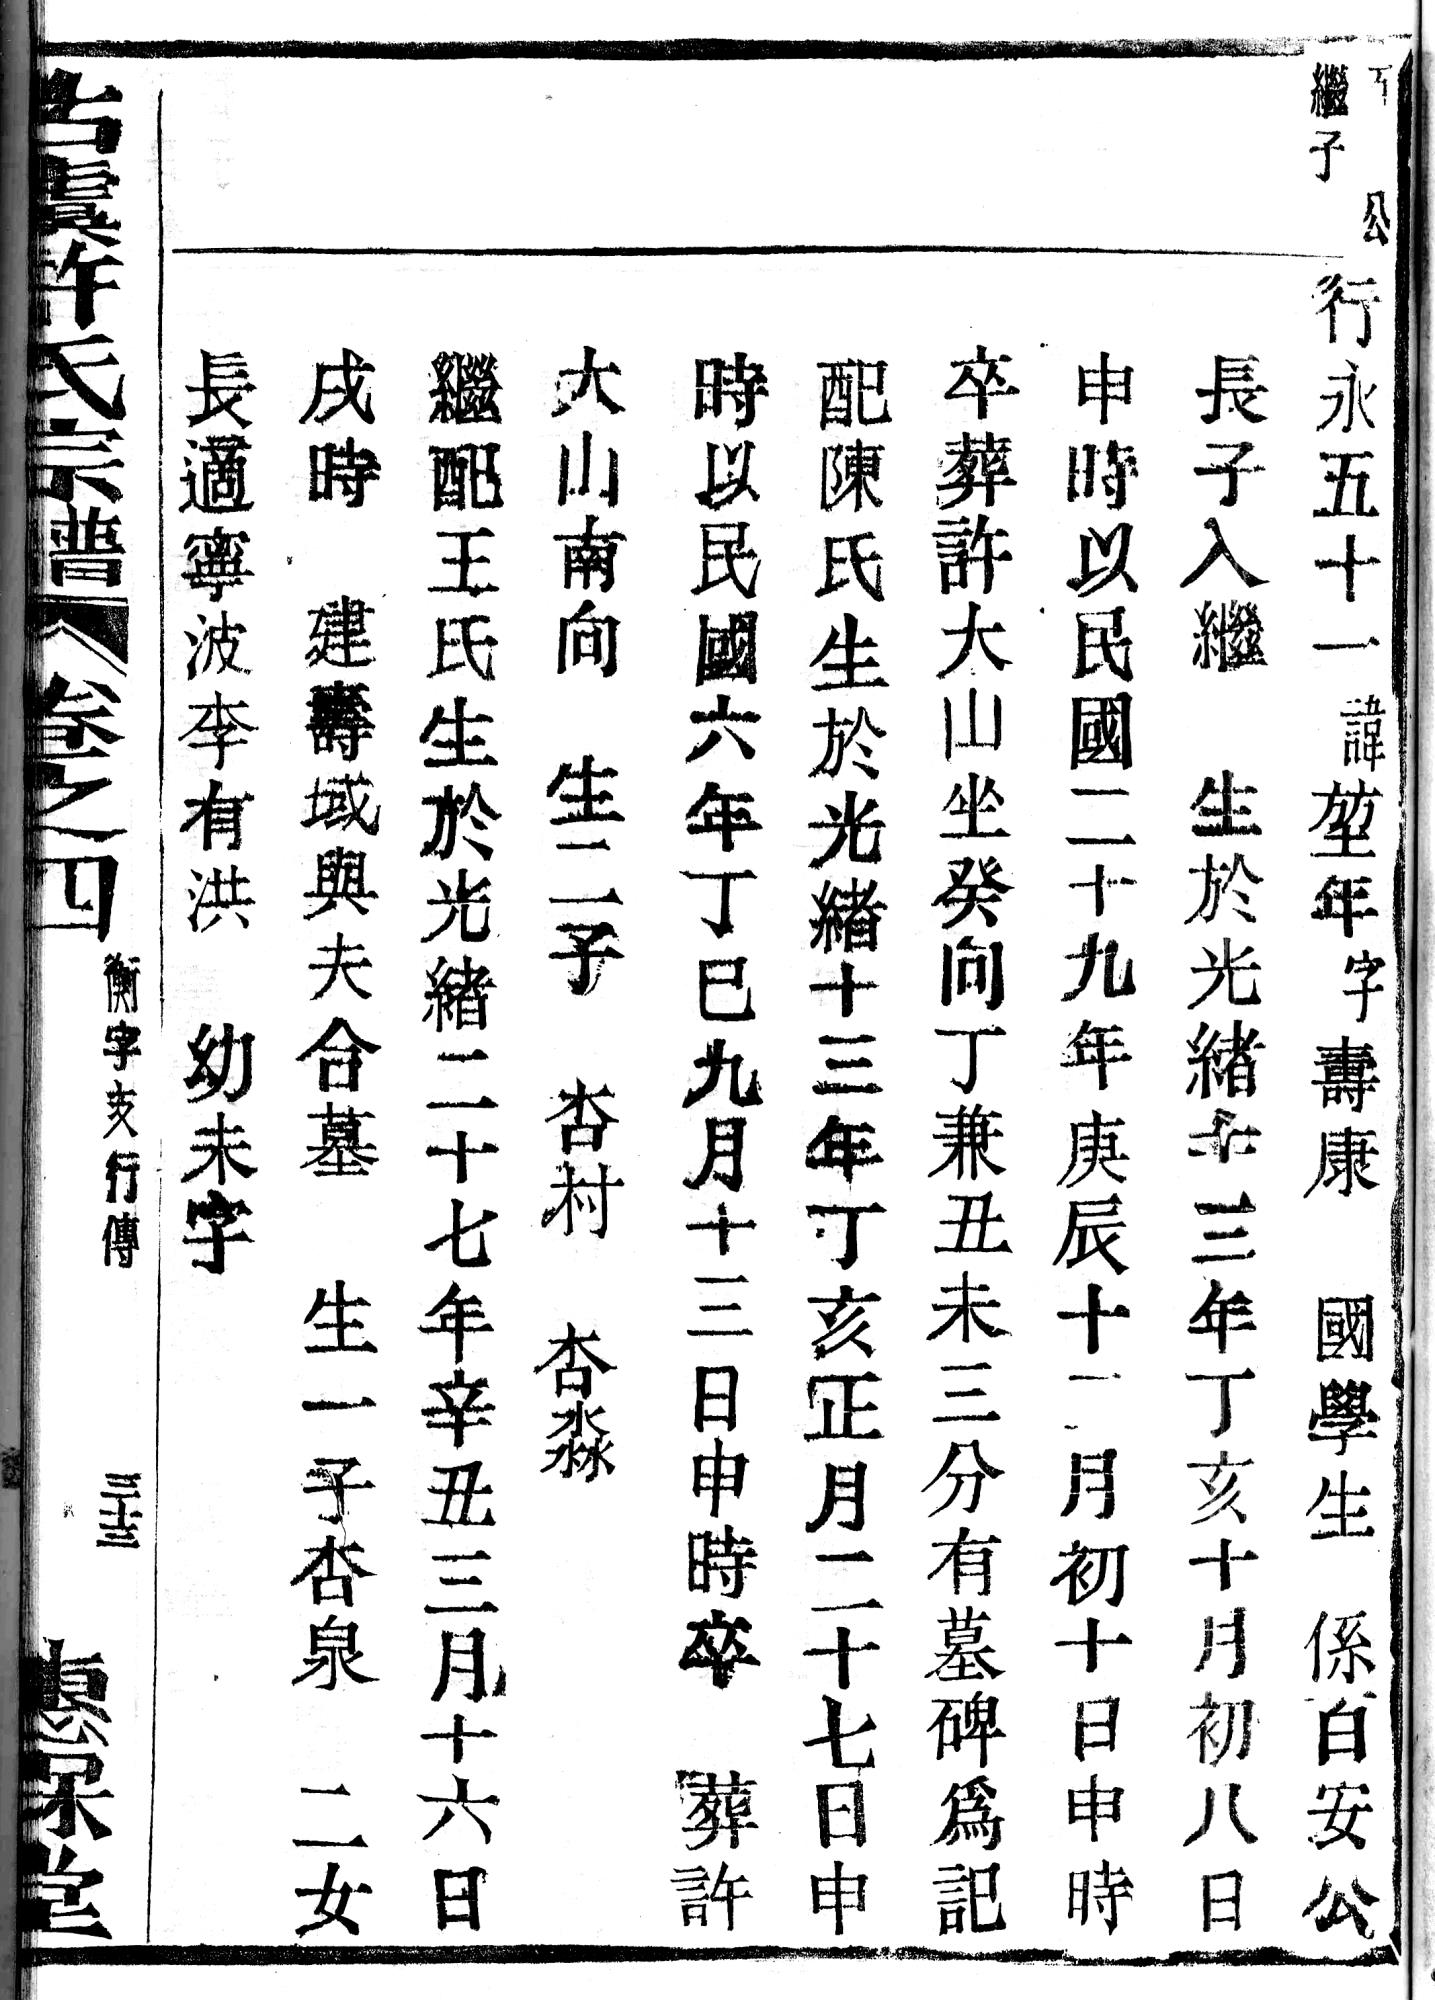 公
繼子
行永五十一諱堃年字壽康 國學生 係百安公
長子入繼 生於光緒十三年丁亥十月初八日
申時以民國二十九年庚辰十一月初十日申時
卒葬許大山坐癸向丁兼丑未三分有墓碑爲記
配陳氏生於光緒十三年丁亥正月二十七日申
時以民國六年丁巳九月十三日申時卒 葬許
大山南向 生二子 杏村 杏淼
繼配王氏生於光緒二十七年辛丑三月十六日
戌時 建壽域與夫合墓 生一子杏泉 二女
長適寧波李有洪 幼未字
古虞許氏宗譜 卷之四 衡字支行傳 三十三 惠保堂